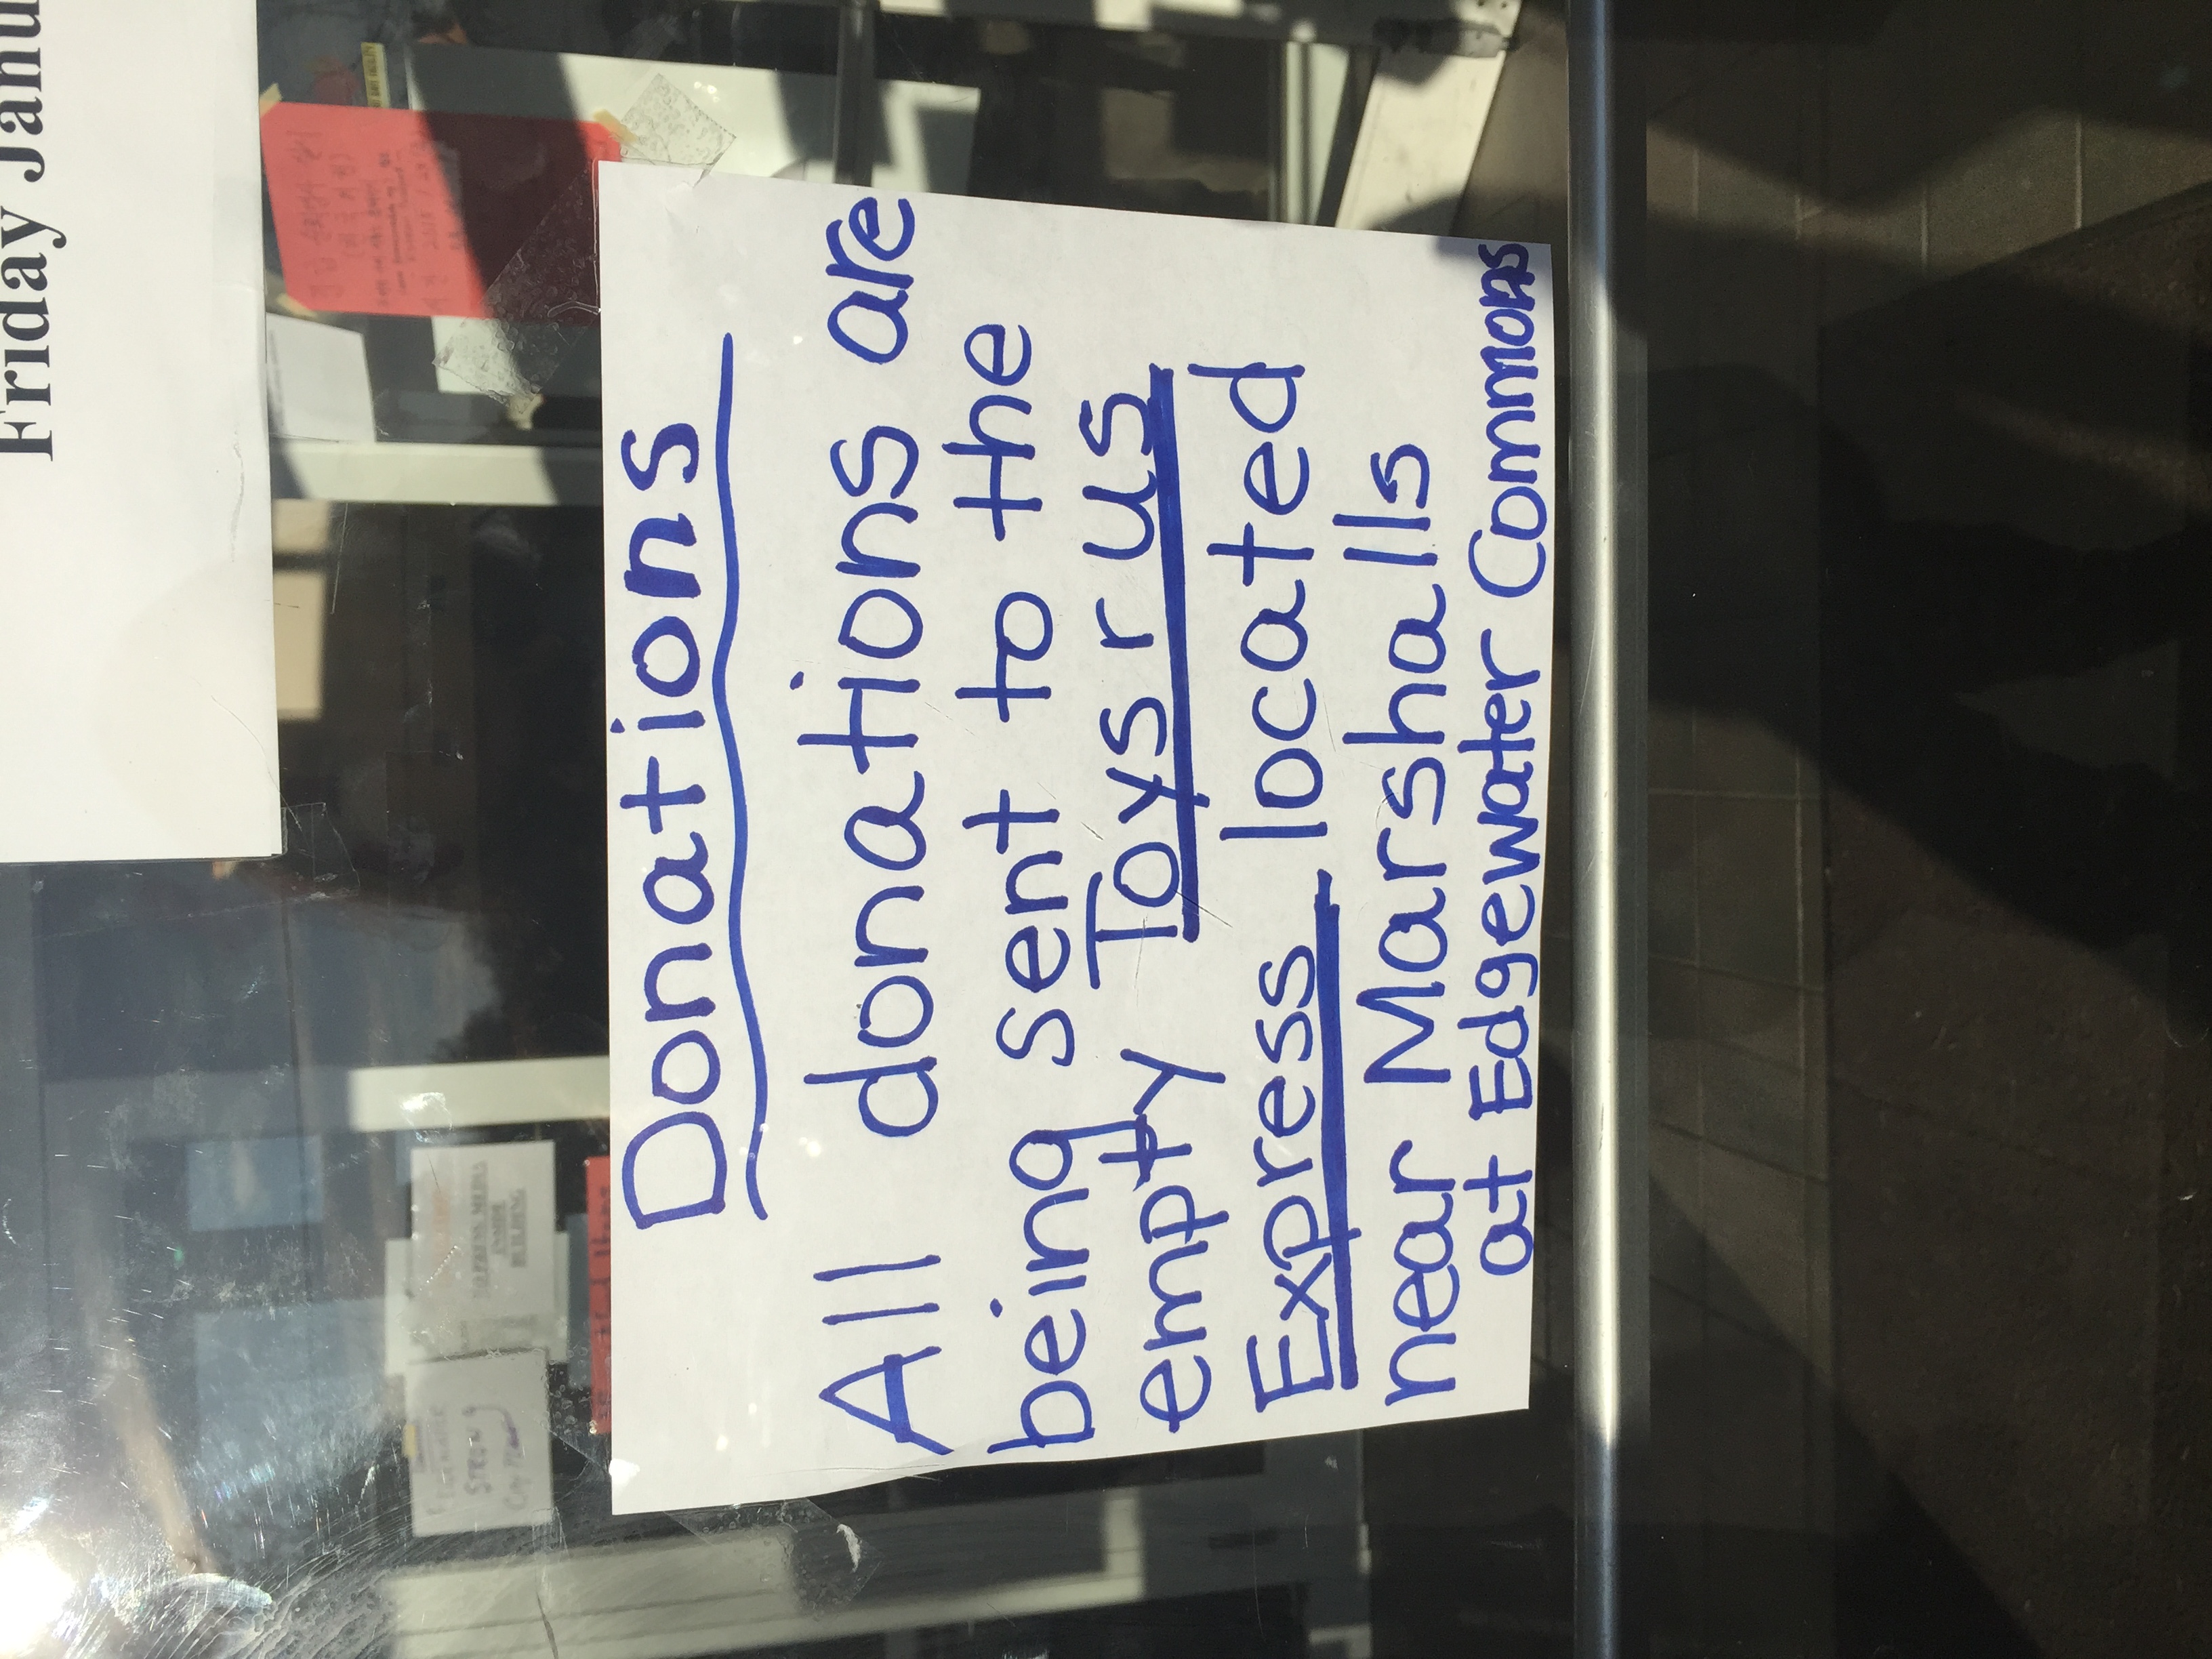 Friday Janu
Donations
All donations are
being sent to the
empty Toys r us
Express located
near Marshalls
at Edgewater Commons
TO PRESS/MEDIA
INSIDE
BUILDING